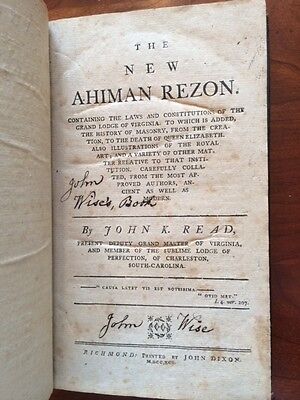 THE
NEW
AHIMAN REZON.
CONTAINING THE LAWS AND CONSTITUTIONS OF THE
GRAND LODGE OF VIRGINIA. TO WHICH IS ADDED,
THE HISTORY OF MASONRY, FROM THE CREA-
TION, TO THE DEATH OF QUEEN ELIZABETH.
ALSO ILLUSTRATIONS OF THE ROYAL
ART; AND A VARIETY OF OTHER MAT-
TER RELATIVE TO THAT INSTI-
TUTION. CAREFULLY COLLA-
TED, FROM THE MOST AP-
PROVED AUTHORS, AN-
CIENT AS WELL AS
MODERN.
John
Wise's Book
By JOHN K. READ,
PRESENT DEPUTY GRAND MASTER OF VIRGINIA,
AND MEMBER OF THE SUBLIME LODGE OF
PERFECTION, OF CHARLESTON,
SOUTH-CAROLINA.
"CAUSA LATET VIS EST NOTISSIMA."
"OVID MET."
207.
John Wise
RICHMOND: PRINTED BY JOHN DIXON.
M,DCC,XCI.